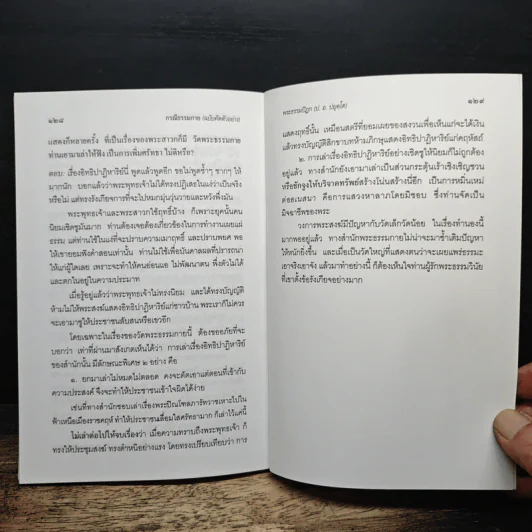 ๑๒๘
กรณีธรรมกาย (ฉบับคัดตัวอย่าง)
แสดงก็หลายครั้ง ที่เป็นเรื่องของพระสาวกก็มี วัดพระธรรมกาย
ท่านเอามาเล่าให้ฟัง เป็นการเพิ่มศรัทธา ไม่ดีหรือ?
ตอบ: เรื่องอิทธิปาฏิหาริย์นี่ พูดแล้วพูดอีก ขอไม่พูดซ้ำๆ ซากๆ ให้
มากนัก บอกแล้วว่าพระพุทธเจ้าไม่ได้ทรงปฏิเสธในแง่ว่าเป็นจริง
หรือไม่ แต่ทรงรังเกียจการที่จะไปหมกมุ่นวุ่นวายและหวังพึ่งมัน
พระพุทธเจ้าและพระสาวกใช้ฤทธิ์บ้าง ก็เพราะยุคนั้นคน
นิยมเชิดชูมันมาก ท่านต้องเจอต้องเกี่ยวข้องในการทำงานเผยแผ่
ธรรม แต่ท่านใช้ในแง่ที่จะปราบความเมาฤทธิ์ และปราบพยศ พอ
ให้เขายอมฟังคำสอนเท่านั้น ท่านไม่ใช้เพื่อบันดาลผลที่ปรารถนา
ให้แก่ผู้ใดเลย เพราะจะทำให้คนอ่อนแอ ไม่พัฒนาตน พึ่งตัวไม่ได้
และตกในอยู่ในความประมาท
เมื่อรู้อยู่แล้วว่าพระพุทธเจ้าไม่ทรงนิยม และได้ทรงบัญญัติ
ห้ามไม่ให้พระสงฆ์แสดงอิทธิปาฏิหาริย์แก่ชาวบ้าน พระเราก็ไม่ควร
จะเอามาชูให้ประชาชนสับสนหรือเขวอีก
โดยเฉพาะในเรื่องของวัดพระธรรมกายนี้ ต้องขออภัยที่จะ
บอกว่า เท่าที่ผ่านมาสังเกตเห็นได้ว่า การเล่าเรื่องอิทธิปาฏิหาริย์
ของสำนักนั้น มีลักษณะพิเศษ ๒ อย่าง คือ
๑. ยกมาเล่าไม่หมดไม่ตลอด คงจะตัดเอาแต่ตอนที่เข้ากับ
ความประสงค์ จึงจะทำให้ประชาชนเข้าใจผิดได้ง่าย
เช่นที่ทางสำนักชอบเล่าเรื่องพระปิณโฑลภารัทวาชเหาะไปใน
ฟ้าเหนือเมืองราชคฤห์ ทำให้ประชาชนเลื่อมใสศรัทธามาก ก็เล่าไว้แค่นี้
ไม่เล่าต่อไปให้จบเรื่องว่า เมื่อความทราบถึงพระพุทธเจ้า ก็
ทรงให้ประชุมสงฆ์ ทรงตำหนิอย่างแรง โดยทรงเปรียบเทียบว่า การ
พระธรรมปิฎก (ป. อ. ปยุตฺโต)
๑๒๙
แสดงฤทธิ์นั้น เหมือนสตรีที่ยอมเผยของสงวนเพื่อเห็นแก่จะได้เงิน
แล้วทรงบัญญัติสิกขาบทห้ามภิกษุแสดงอิทธิปาฏิหาริย์แก่คฤหัสถ์
๒. การเล่าเรื่องอิทธิปาฏิหาริย์อย่างเชิดชูให้นิยมก็ไม่ถูกต้อง
อยู่แล้ว ทางสำนักยังเอามาเล่าเป็นส่วนกระตุ้นเร้าเชิงเชิญชวน
หรือชักจูงให้บริจาคทรัพย์สร้างโน่นสร้างนี่อีก เป็นการหมิ่นเหม่
ต่ออเนสนา คือการแสวงหาลาภโดยมิชอบ ซึ่งท่านจัดเป็น
มิจฉาชีพของพระ
วงการพระสงฆ์มีปัญหากับวัดเล็กวัดน้อย ในเรื่องทำนองนี้
มากพออยู่แล้ว ทางสำนักพระธรรมกายไม่น่าจะมาซ้ำเติมปัญหา
ให้หนักยิ่งขึ้น และเมื่อเป็นวัดใหญ่ที่แสดงตนว่าจะเผยแพร่ธรรมะ
เอาจริงเอาจัง แล้วมาทำอย่างนี้ ก็ต้องเห็นใจท่านผู้รักพระธรรมวินัย
ที่เขาตั้งข้อรังเกียจอย่างมาก